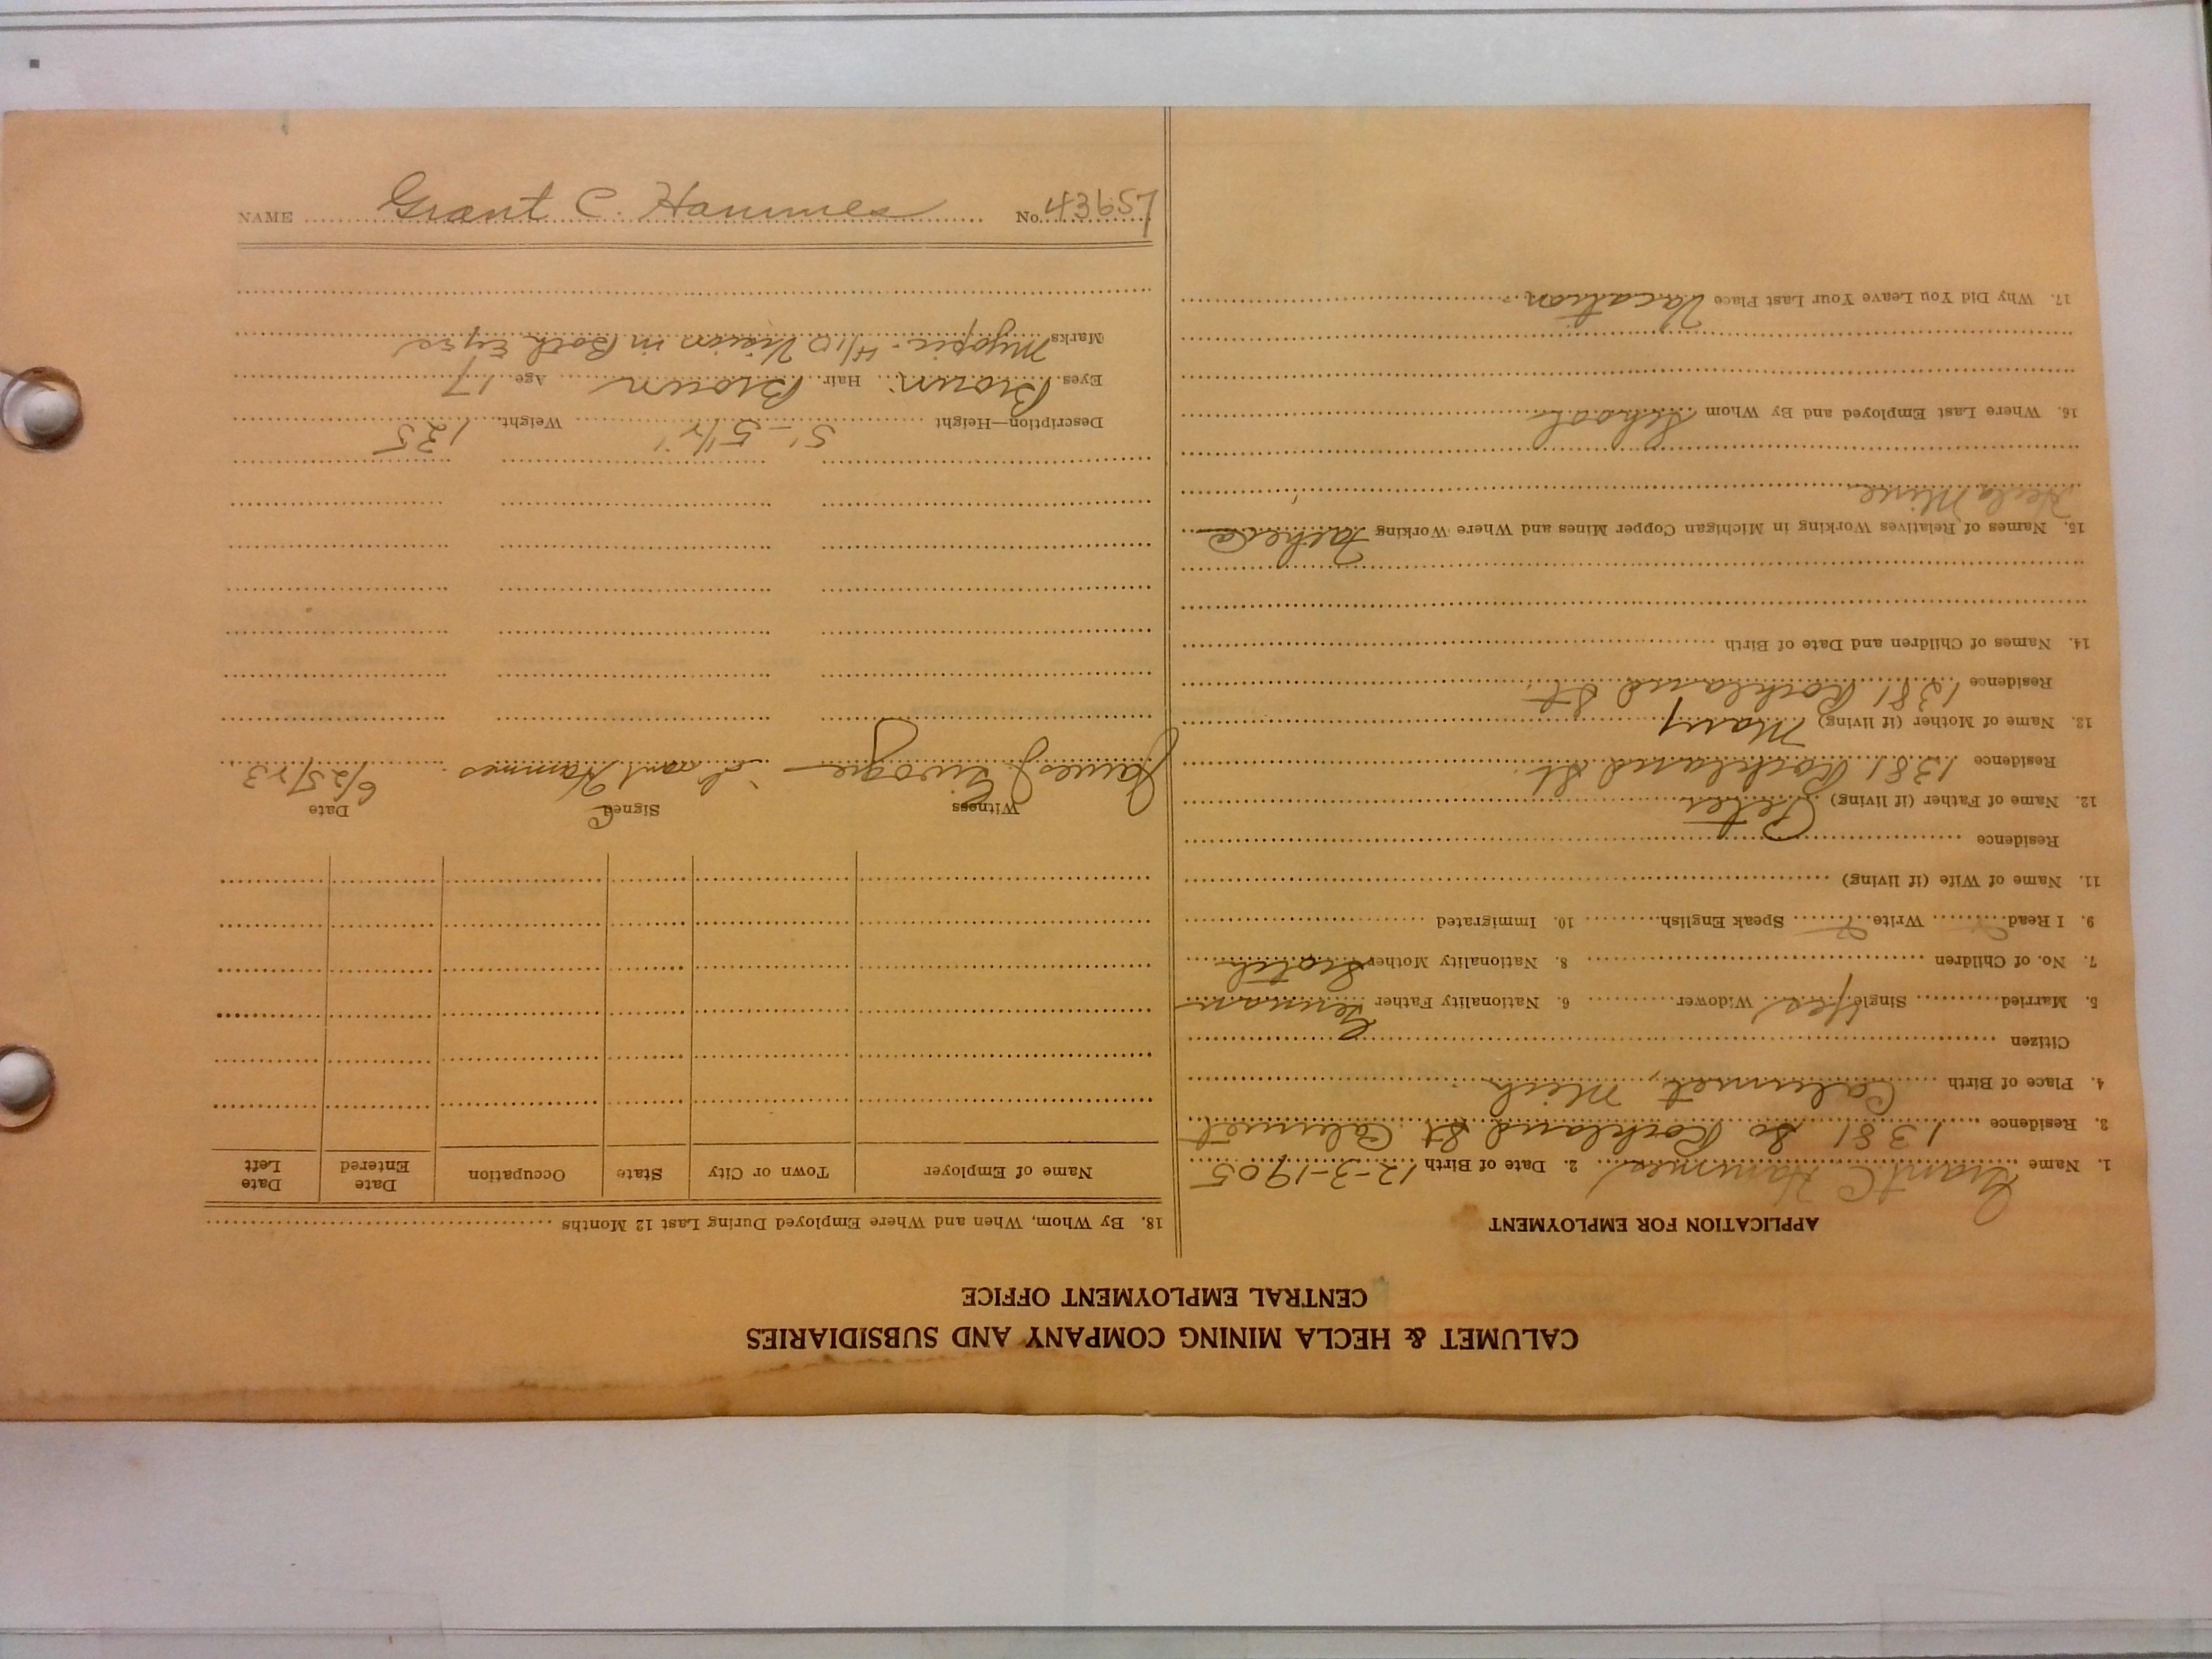 CALUMET & HECLA MINING COMPANY AND SUBSIDIARIES
CENTRAL EMPLOYMENT OFFICE
APPLICATION FOR EMPLOYMENT
1. Name Grant C Hammes 2. Date of Birth 12-3-1905
3. Residence 1381 So Rockland St Calumet
4. Place of Birth Calumet, Mich
Citizen
5. Married Single Yes Widower 6. Nationality Father German
7. No. of Children 8. Nationality Mother Scotch
9. I Read Write Speak English 10. Immigrated
11. Name of Wife (if living)
Residence
12. Name of Father (if living) Peter
Residence 1381 Rockland St.
13. Name of Mother (if living) Mary
Residence 1381 Rockland St.
14. Names of Children and Date of Birth
15. Names of Relatives Working in Michigan Copper Mines and Where Working Father
Hecla Mine
16. Where Last Employed and By Whom School
17. Why Did You Leave Your Last Place Vacation
18. By Whom, When and Where Employed During Last 12 Months
Name of Employer Town or City State Occupation Date Entered Date Left
Witness Signed Date
James J. Grant C Hammes 6/25/23
Description—Height 5'-5 1/2" Weight 125
Eyes Brown Hair Brown Age 17
Marks Myopic. 4/10 Vision in Both Eyes
NAME Grant C. Hammes No. 43657